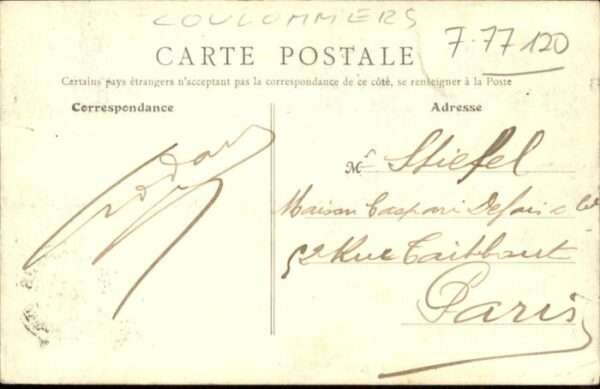 COULOMMIERS
7-77120
CARTE POSTALE
Certains pays étrangers n'acceptant pas la correspondance de ce côté, se renseigner à la Poste
Correspondance
Adresse
Mr Stiefel
Maison Caspari
52 Rue Taitbout
Paris